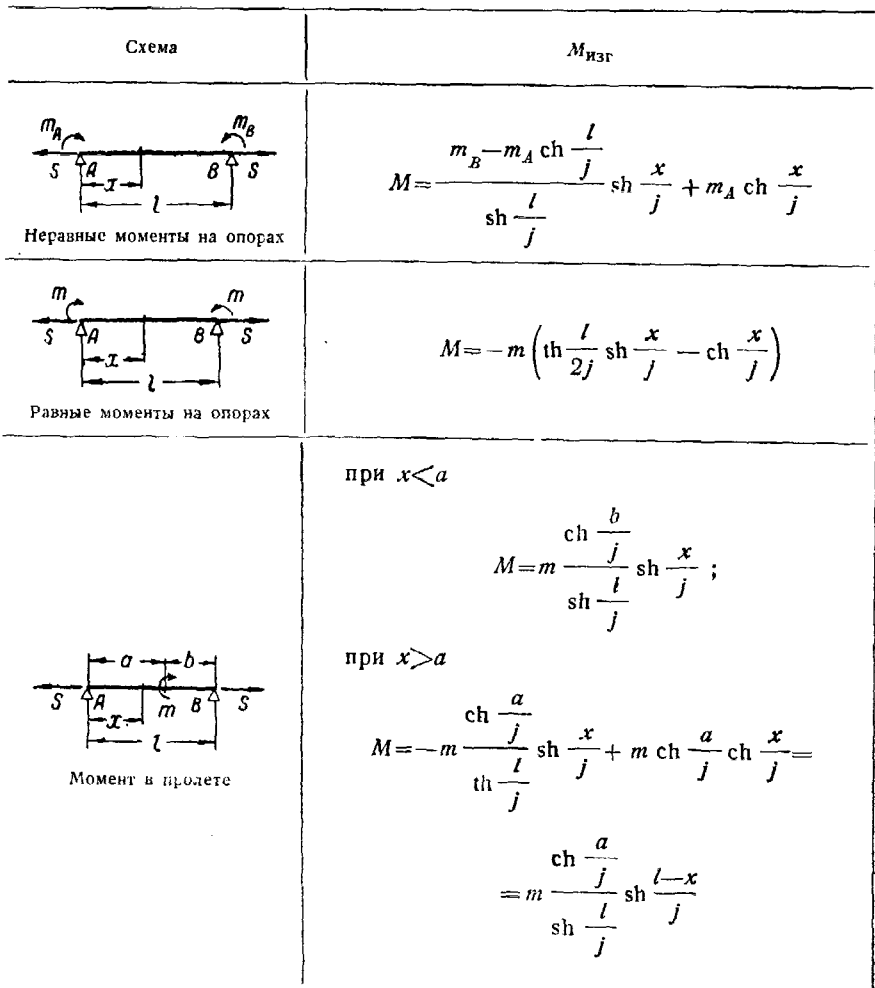 Схема
M изг
m_A m_B
S A B S
x
l
Неравные моменты на опорах
M = \frac{m_B - m_A ch \frac{l}{j}}{sh \frac{l}{j}} sh \frac{x}{j} + m_A ch \frac{x}{j}
m m
S A B S
x
l
Равные моменты на опорах
M = -m ( th \frac{l}{2j} sh \frac{x}{j} - ch \frac{x}{j} )
a b
S A m B S
x
l
Момент в пролете
при x<a
M = m \frac{ch \frac{b}{j}}{sh \frac{l}{j}} sh \frac{x}{j} ;
при x>a
M = -m \frac{ch \frac{a}{j}}{th \frac{l}{j}} sh \frac{x}{j} + m ch \frac{a}{j} ch \frac{x}{j} =
= m \frac{ch \frac{a}{j}}{sh \frac{l}{j}} sh \frac{l-x}{j}